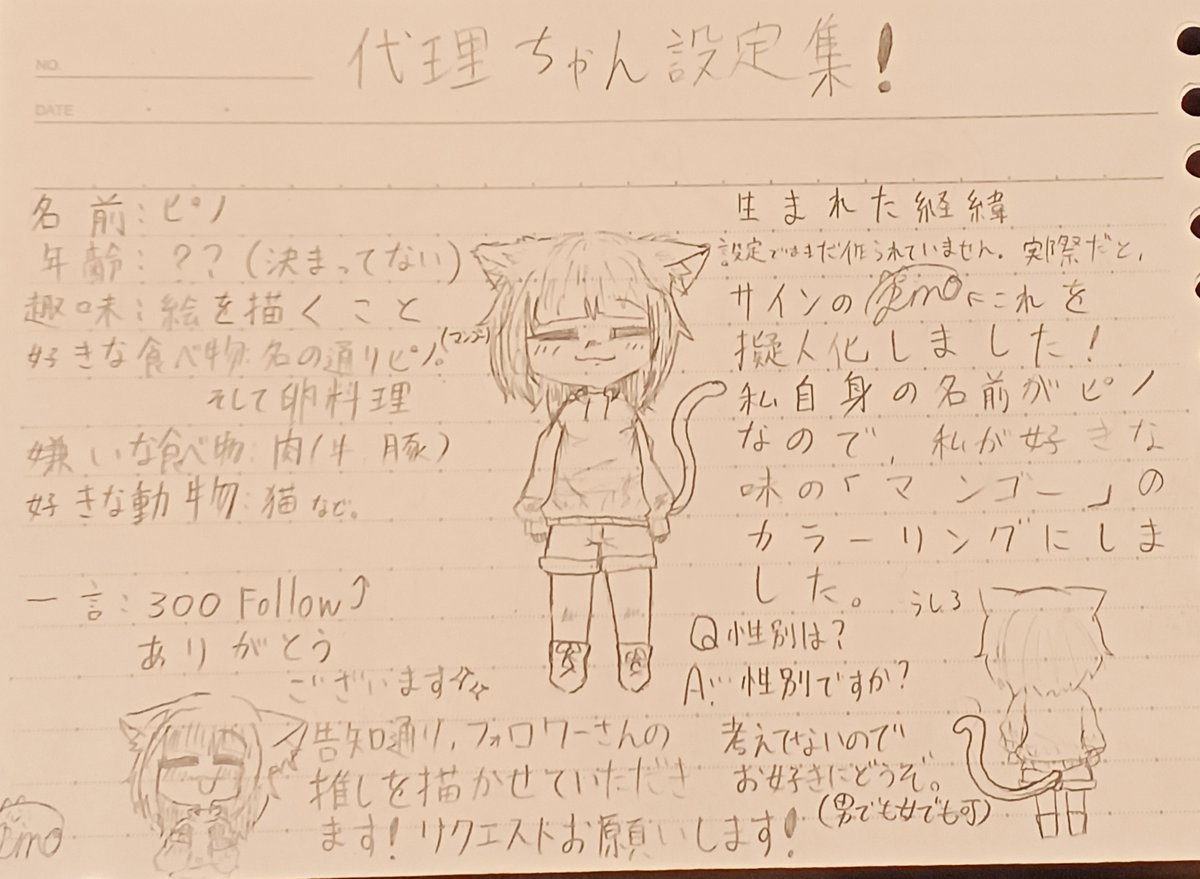 代理ちゃん設定集!
NO.
DATE
名前:ピノ
年齢:??(決まってない)
趣味:絵を描くこと
好きな食べ物:名の通りピノ。(マンゴー)
そして卵料理
嫌いな食べ物:肉(牛 豚)
好きな動物:猫など。
一言:300 Follow⤴
ありがとう
ございます
告知通り,フォロワーさんの
推しを描かせていただき
ます!リクエストお願いします!
生まれた経緯
設定ではまだ作られていません。実際だと,
サインの これを
擬人化しました!
私自身の名前がピノ
なので,私が好きな
味の「マンゴー」の
カラーリングにしま
した。
うしろ
Q性別は?
A…性別ですか?
考えてないので
お好きにどうぞ。
(男でも女でも可)